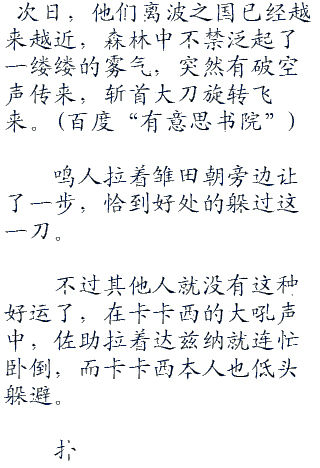 次日，他们离波之国已经越
来越近，森林中不禁泛起了
一缕缕的雾气，突然有破空
声传来，斩首大刀旋转飞
来。(百度“有意思书院”)
鸣人拉着雏田朝旁边让
了一步，恰到好处的躲过这
一刀。
不过其他人就没有这种
好运了，在卡卡西的大吼声
中，佐助拉着达兹纳就连忙
卧倒，而卡卡西本人也低头
躲避。